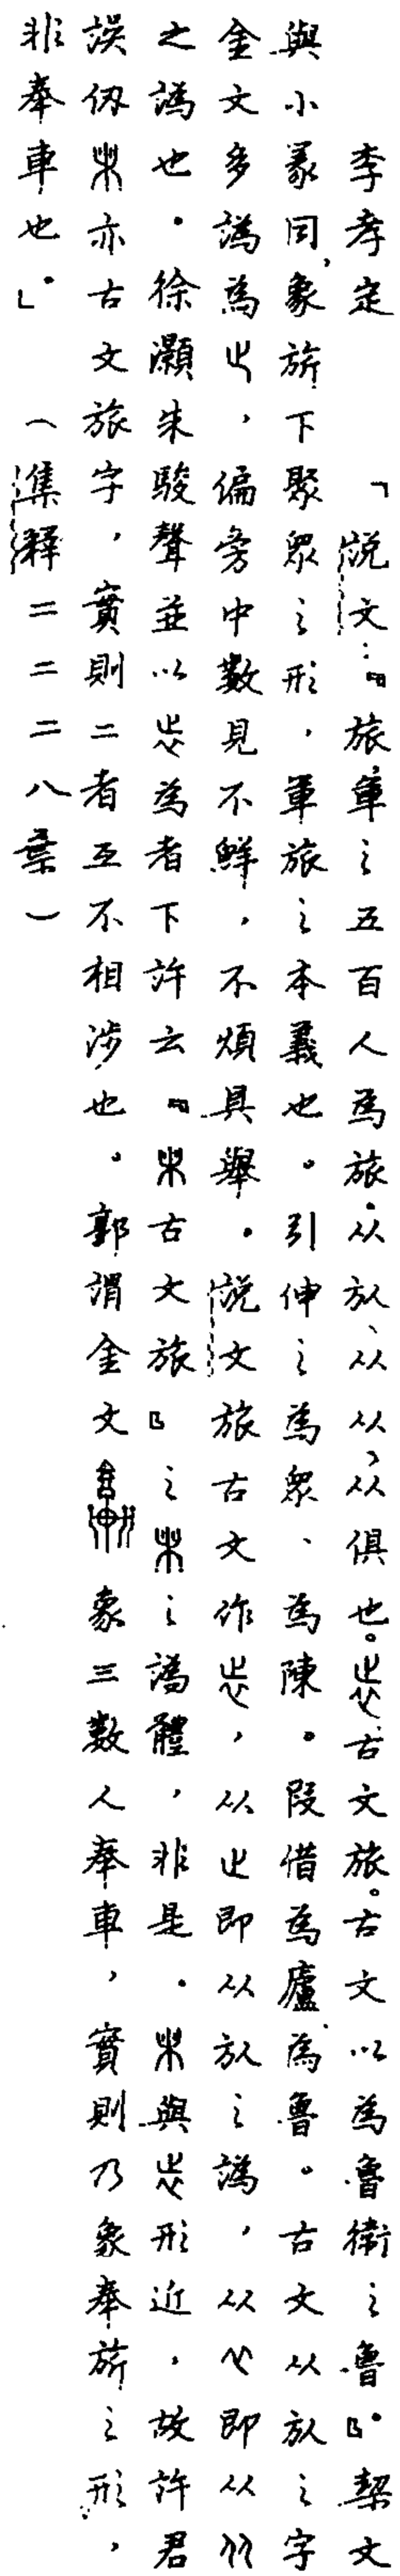 李孝定　「說文：『旅，軍之五百人為旅。从㫃、从从，从俱也。㫈古文旅。古文以為魯衛之魯』。栔文
與小篆同，象旂下聚眾之形，軍旅之本義也。引伸之為眾、為陳。叚借為廬為魯。古文从㫃之字
金文多譌為止，偏旁中數見不鮮，不煩具舉。說文旅古文作㫈，从止即从㫃之譌，从即从
之譌也。徐灝朱駿聲並以㫈為者下許云『𣥐古文旅』之𣥐之譌體，非是。𣥐與㫈形近，故許君
誤仞𣥐亦古文旅字，實則二者互不相涉也。郭謂金文象三數人奉車，實則乃象奉旂之形，
非奉車也。」　（集釋二二二八葉）